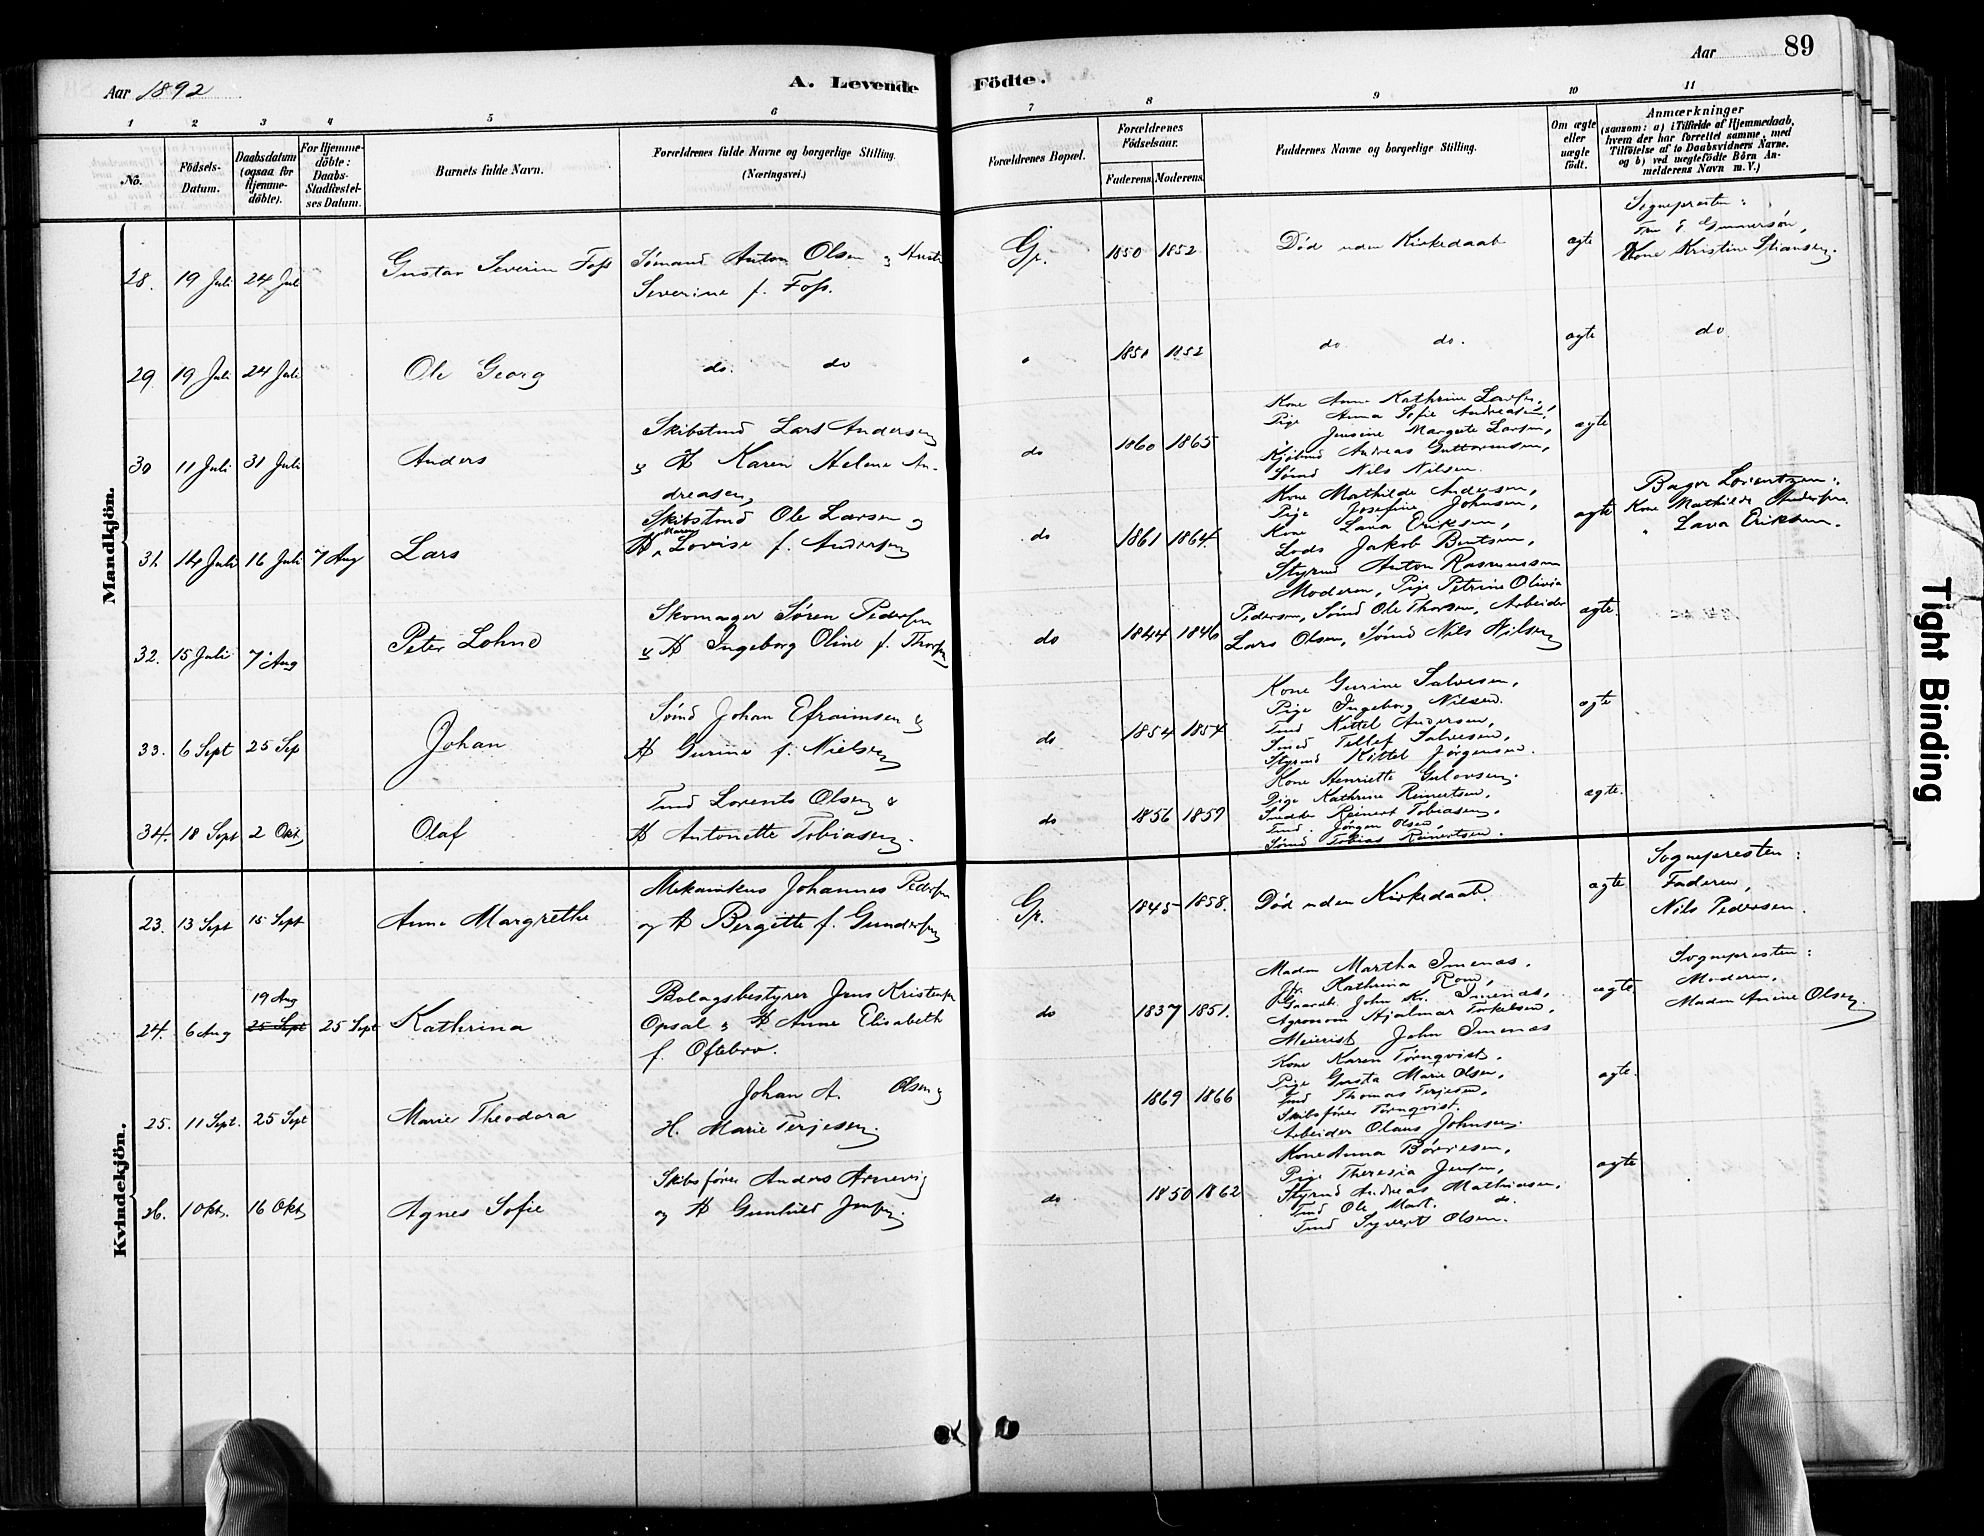 Aar 1892
A. Levende
Födte.
Aar
89
1 2 3 4 5 6 7 8 9 10 11
No.
Födsels-
Datum.
Daabsdatum
(ogsaa for
Hjemme-
döbte).
For Hjemme-
döbte:
Daabs-
Stadfæstel-
ses Datum.
Barnets fulde Navn.
Forældrenes fulde Navne og borgerlige Stilling.
(Næringsvei.)
Forældrenes Bopæl.
Forældrenes
Födselsaar.
Faderens. Moderens.
Faddernes Navne og borgerlige Stilling.
Om ægte
eller
uægte
födt.
Anmærkninger
(saasom: a) i Tilfælde af Hjemmedaab,
hvem der har forrettet samme, med
Tilföielse af to Daabsvidners Navne.
og b) ved uægtefödte Börn An-
melderens Navn m. V.)
Mandkjön.
28. 19 Juli 24 Juli
Gustav Severin Foss
Sømand Anton Olsen
Severine f. Foss.
Gr.
1850 1852
Død uden Kirkedaab
ægte
Sognepresten:
Fru E Gunnersön,
Kone Kristine
29. 19 Juli 24 Juli
Ole Georg
do. do
1850 1852
do. do.
ægte
do
30 11 Juli 31 Juli
Anders
Skibstmd Lars Andersen
& H Karen Helene An-
dreasen
do
1860 1865
Kone Anne Kathrine
Pige Anna Sofie Andreasen,
Jensine Margrete Larsen,
Kjøbmd Andreas Guttormsen,
Sømd Nils Nilsen.
ægte
31. 14 Juli 16 Juli 7 Aug
Lars
Skibstmd Ole Larsen &
H. Maren Lovise f. Andersen
do
1861 1864.
Kone Mathilde Andersen,
Pige Josefine Johnsen,
Kone Lava Eriksen,
Lods Jakob Bentsen,
Styrmd Anton Rasmussen
ægte
Bager Lorentzen:
Kone Mathilde Andersen
" Lava Eriksen.
32. 15 Juli 7 Aug
Peter Lohne
Skomager Søren Pedersen
& H Ingeborg Oline f. Thorsen
do
1844 1846
Moderen, Pige Petrine Olivia
Pedersen, Sømd Ole Thorsen, Arbeider
Lars Olsen, Sømd Nils Nilsen
ægte.
33. 6 Sept 25 Sep
Johan
Sømd Johan Efraimsen &
H Gurine f. Nielsen
do.
1854 1854
Kone Gurine Salvesen,
Pige Ingeborg Nilsen.
Tmd Kittel Andersen,
Smed Tellef Salvesen,
Styrmd Kittel Jörgensen.
ægte
34. 18 Sept 2 Okt
Olaf
Tmd Lorents Olsen &
H Antonette Tobiasen.
do
1856 1859
Kone Henriette
Pige Kathrine Reinertsen,
Reinert Tobiasen,
Tmd. Jörgen Olsen
Sømd Tobias Reinertsen.
ægte.
Kvindekjön.
23. 13 Sept 15 Sept
Anne Margrethe
Mekanikus Johannes Pedersen
og H Bergitte f. Gundersen
Gr.
1845 1858.
Død uden Kirkedaab.
ægte
Sognepresten:
Faderen,
Nils Pedersen.
24. 6 Aug 19 Aug 25 Sept 25 Sept
Kathrina
Bolagsbestyrer Jens Kristensen
Opsal & H Anne Elisabeth
f. Oftebro.
do
1837 1851.
Madm Martha Imenæs,
Kathrina
Gaardb. John Kr. Imenæs,
Agronom Hjalmar Torkelsen,
Meierist John Imenæs
ægte
Sognepresten:
Moderen,
Madam Amine Olsen
25. 11 Sept. 25 Sept
Marie Theodora
Johan A. Olsen
H. Marie Terjesen.
1869 1866
Kone Karen Törnqvist,
Pige Gusta Marie Olsen,
Tmd Thomas Terjesen,
Skibsfører Törnqvist.
Arbeider Olaus Johnsen.
ægte.
26. 1 Okt. 16 Okt
Agnes Sofie
Skibsfører Anders Arnevig
og H Gunhild Jensen.
do
1850 1862
Kone Anna Börresen,
Pige Theresia Jensen,
Styrmd Andreas Mathiasen,
Tmd Ole Mart. do.
Tmd Syvert Olsen.
ægte
Tight Binding